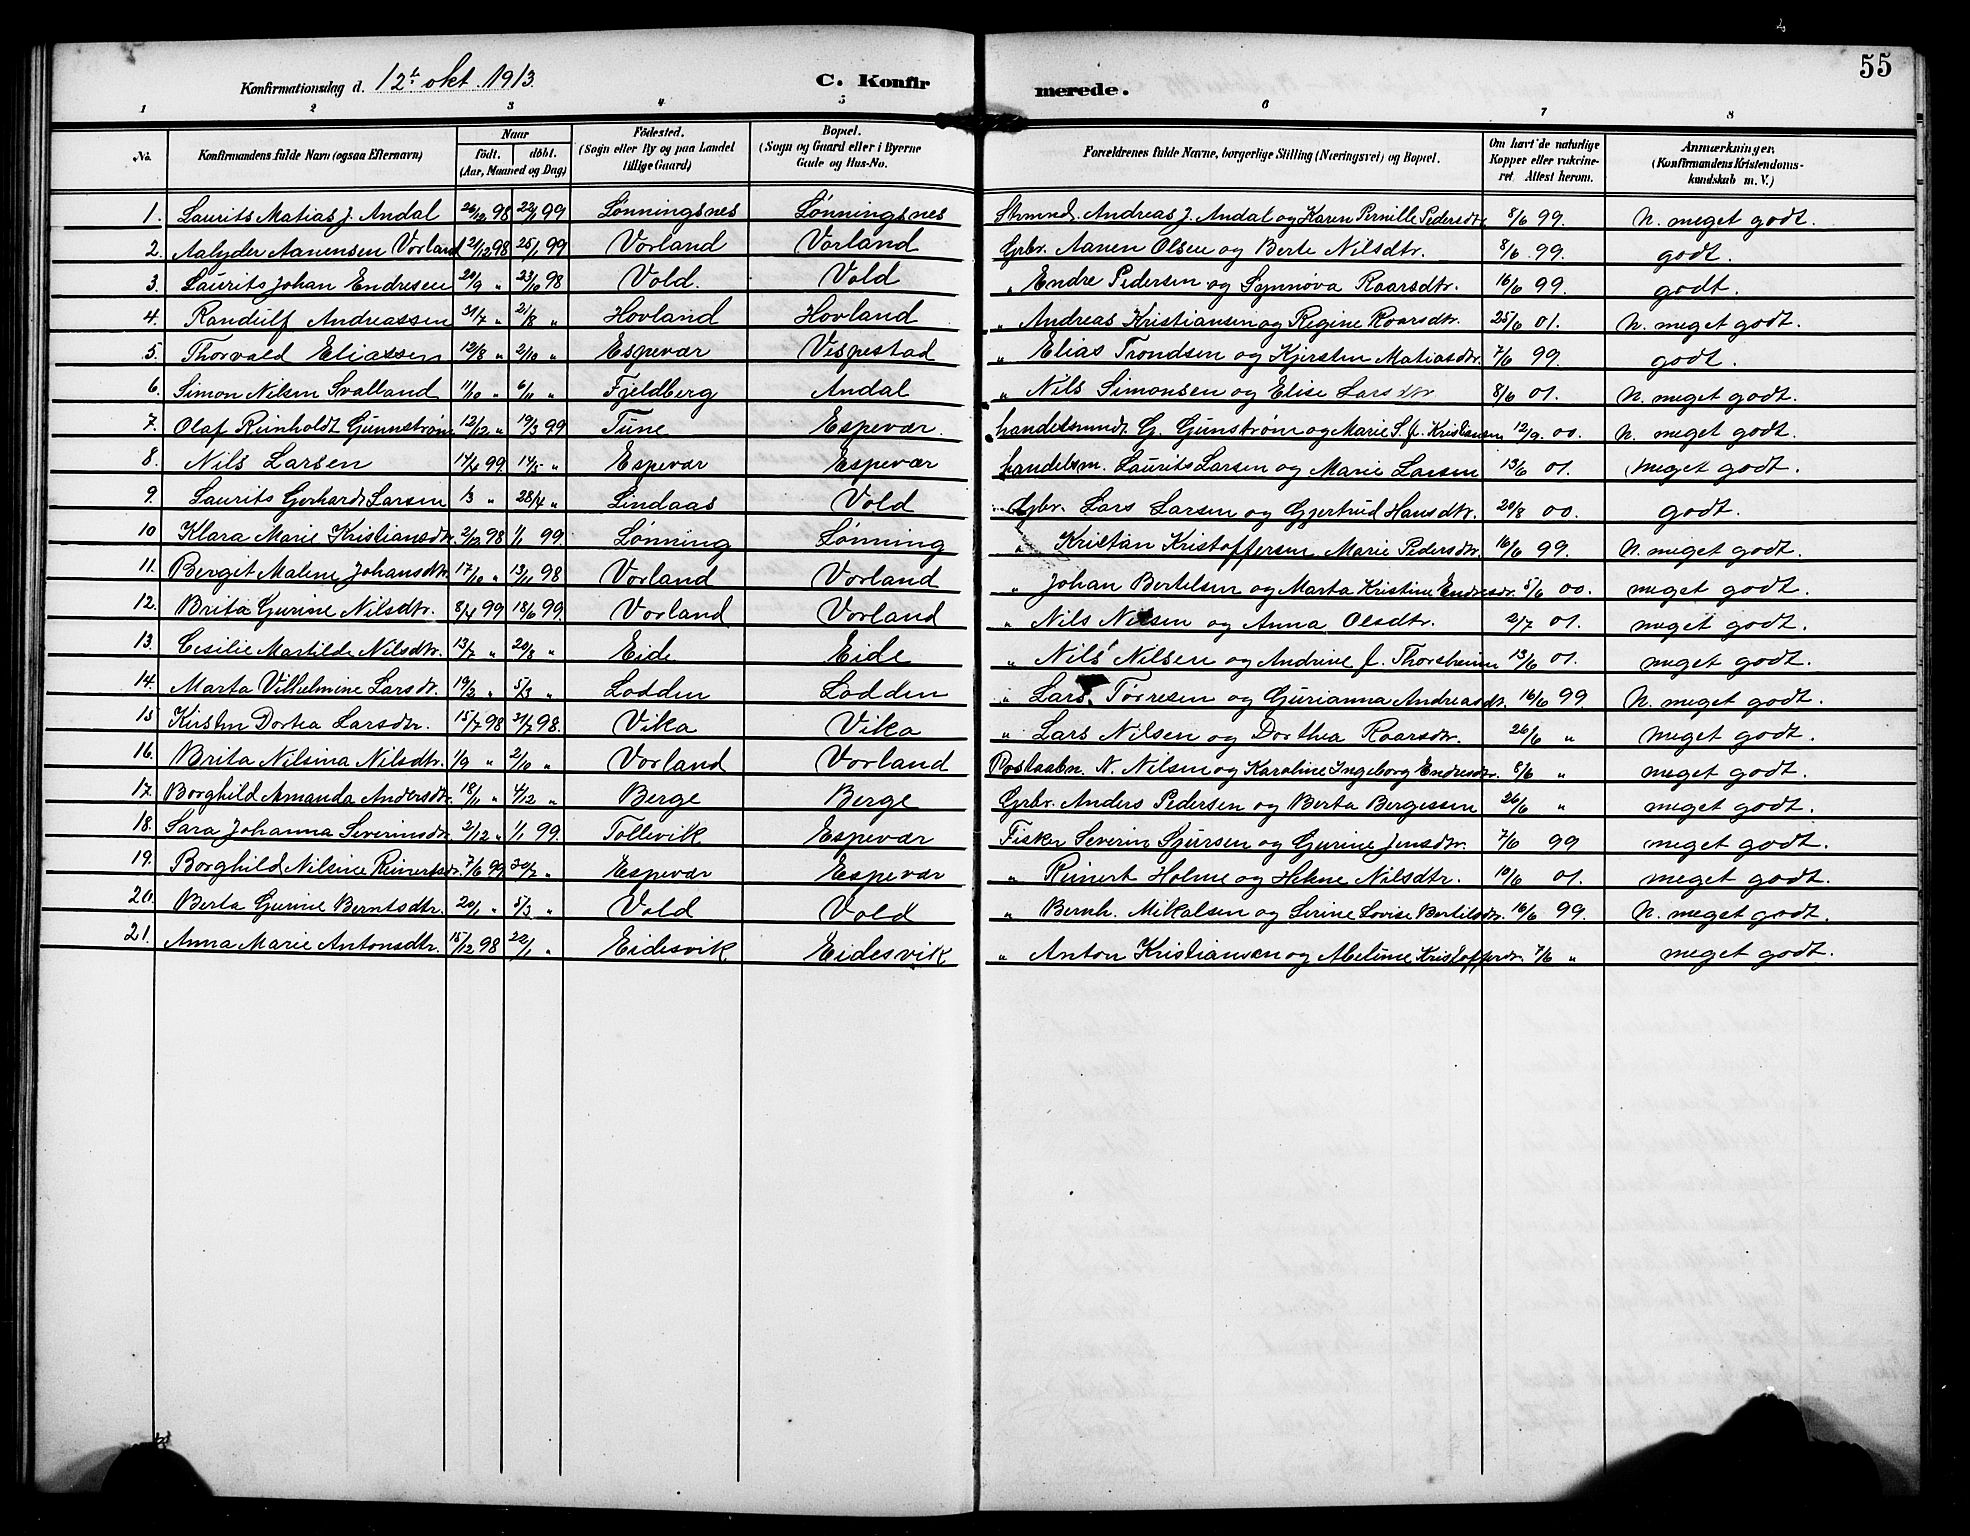 55
Konfirmationsdag d. 12t okt. 1913. C. Konfirmerede.
1 2 3 4 5 6 7 8
No. Konfirmandens fulde Navn (ogsaa Efternavn) Naar födt. döbt. (Aar, Maaned og Dag) Födested. (Sogn eller By og paa Landet tillige Gaard) Bopæl. (Sogn og Gaard eller i Byerne Gade og Hus-No. Forældrenes fulde Navne, borgerlige Stilling (Næringsvei) og Bopæl. Om havt de naturlige Kopper eller vakcineret. Attest herom. Anmærkninger, (Konfirmandens Kristendomskundskab m. V.)
1. Laurits Matias J. Andal 26/12 98 22/1 99 Lønningsnes Lønningsnes Andreas J. Andal og Karen Pernille Pedersdtr. 8/6 99. N. meget godt.
2. Aalyder Aanensen Vorland 21/12 98 25/1 99 Vorland Vorland Grbr. Aanen Olsen og Berte Nilsdtr. 8/6 99. godt.
3. Laurits Johan Endresen 20/9 " 23/10 98 Vold. Vold " Endre Pedersen og Synnøva Roarsdtr. 16/6 99. godt.
4. Randulf Andreassen 31/7 " 21/8 " Hovland Hovland " Andreas Kristiansen og Regine Roarsdtr. 25/6 01. N. meget godt.
5. Thorvald Eliassen 12/8 " 2/10 " Espevær Vespestad " Elias Trondsen og Kjersten Matiasdtr. 7/6 99. godt.
6. Simon Nilsen Svalland 11/10 " 6/11 " Fjeldberg Andal " Nils Simonsen og Elise Larsdtr 8/6 01. N. meget godt.
7. Olaf Reinholdt Gunnstrøm 12/12 " 19/3 99 Tune Espevær. G. Gunstrøm og Marie S. f. Kristiansen 12/9. 00. N. meget godt.
8. Nils Larsen 17/4 99 14/5 " Espevær Espevær handelsm. Laurits Larsen og Marie Larsen 13/6 01. meget godt.
9. Laurits Gerhard Larsen 1/3 " 28/4 " Lindaas Vold Grbr. Lars Larsen og Gjertrud Hansdtr. 20/8 00. godt.
10 Klara Marie Kristiansdtr. 98 1/1 99. Lønning Lønning " Kristian Kristoffersen Marie Pedersdtr. 16/6 99. N. meget godt.
11. Bergit Malene Johansdtr. 17/10 " 13/11 98 Vorland Vorland " Johan Bertelsen og Marta Kristine Endresdtr. 5/6 00. meget godt.
12. Brita Gurine Nilsdtr. 8/4 99 18/6 99. Vorland Vorland " Nils Nilsen og Anna Olsdtr. 2/7 01. meget godt.
13. Cesilie Martilde Nilsdtr. 13/7 " 20/8 " Eide Eide " Nils Nilsen og Andrine f. Thorsheim 13/6 01. meget godt.
14. Marta Vilhelmine Larsdtr. 19/2 " 5/3 " Lodden Lodden " Lars Tørresen og Gurianna Andreasdtr. 16/6 99. N. meget godt.
15 Kirsten Dortea Larsdtr. 15/7 98 31/7 98. Vika Vika " Lars Nilsen og Dorthea Roarsdtr. 26/6 " meget godt.
16. Brita Nilsina Nilsdtr. 1/9 " 2/10 " Vorland Vorland Postaabn. N. Nilsen og Karoline Ingeborg Endresdtr. 8/6 " meget godt.
17. Borghild Amanda Andersdtr. 18/11 " 4/12 " Berge Berge Grbr. Anders Pedersen og Berta Bergessen 26/6 " meget godt.
18. Sara Johanna Severinsdtr. 2/12 " 1/1 99. Tollevik Espevær Fisker Severin Sjursen og Gurine Jensdtr. 7/6 99 meget godt.
19. Borghild Nilsine Reinertsdr. 7/6 99 30/7 " Espevær Espevær " Reinert Holme og Helene Nilsdtr. 10/6 01. meget godt.
20. Berta Gurine Berntsdtr. 20/1 " 5/3 " Vold Vold " Bernh. Mikalsen og Serine Lovise Bertilsdtr. 16/6 99. N. meget godt.
21. Anna Marie Antonsdtr. 15/12 98 22/1 " Eidesvik Eidesvik " Anton Kristiansen og Abeline Kristofferdtr. 7/6 " meget godt.